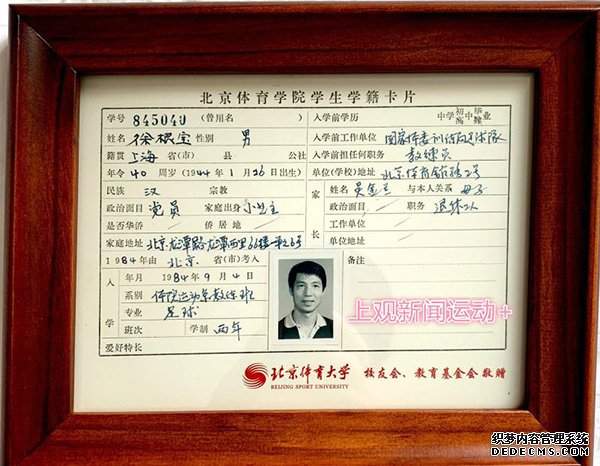 北京体育学院学生学籍卡片
学号 845049 (曾用名) 入学前学历 中学初高中毕肄业
姓名 徐根宝 性别 男 入学前工作单位 国家体委训练局足球队
籍贯 上海 省(市) 县 公社 入学前担任何职务 教练员
年令 40 周岁(1944年1月26日出生) 单位(学校)地址 北京体育馆路2号
民族 汉 宗教 家长 姓名 与本人关系 母子
政治面目 党员 家庭出身 小业主 政治面目 / 职务 退休工人
是否华侨 / 侨居地 / 工作单位 /
家庭地址 北京龙潭路龙潭西里 单位地址 /
1984年由 北京 省(市)考入 备注
入学 年月 1984年9月4日
系别 体院运动系教练班
专业 足球
班次 学制 两年
爱好特长
上观新闻运动+
北京体育大学 校友会、教育基金会敬赠
BEIJING SPORT UNIVERSITY
织梦内容管理系统
DEDECMS.COM